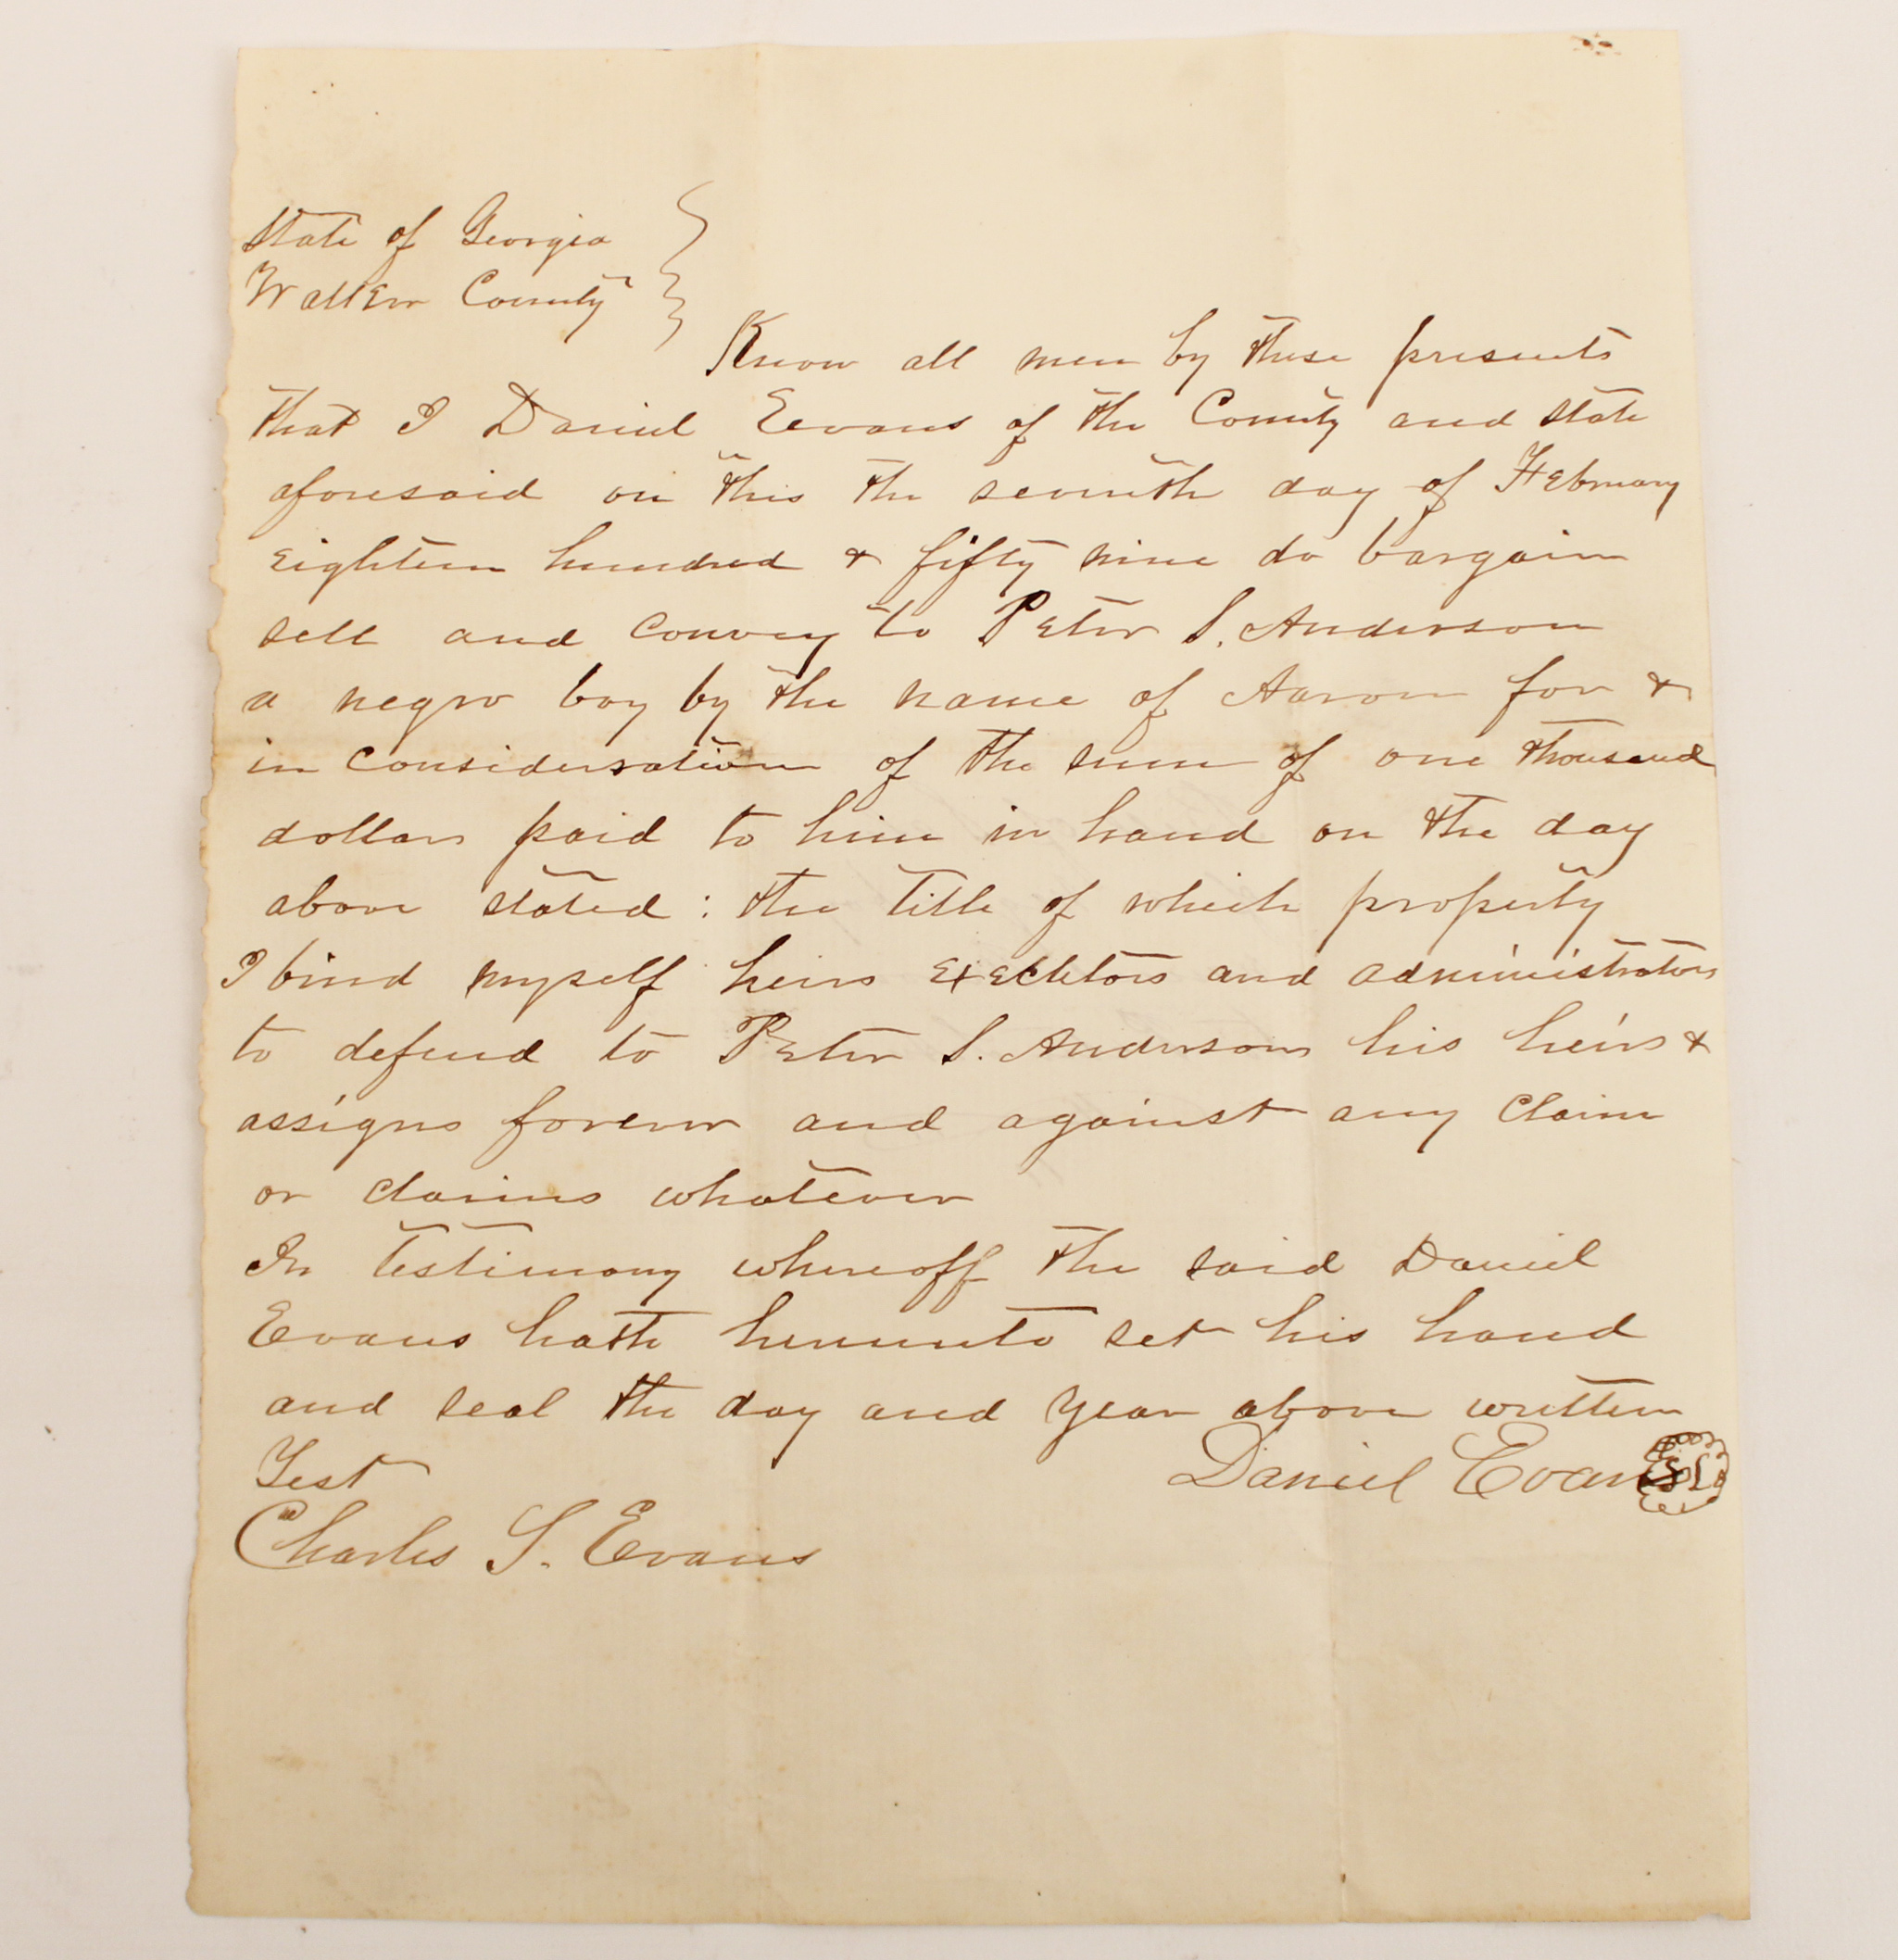 State of Georgia
Walker County
Know all men by these presents
that I Daniel Eevans of the County and state
aforesaid on this the seventh day of February
Eighteen hundred & fifty nine do bargain
sell and convey to Peter S. Anderson
a negro boy by the name of Aaron for &
in consideration of the sum of one thousand
dollars paid to him in hand on the day
above stated : the title of which property
I bind myself heirs Executors and administrators
to defend to Peter S. Anderson his heirs &
assigns forever and against any claim
or claims whatever
In testimony whereoff the said Daniel
Evans hath hereunto set his hand
and seal the day and year above written
Test
Daniel Evans
Charles S. Evans